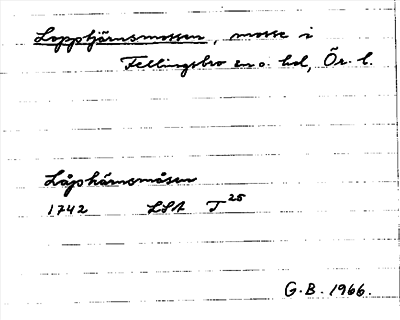 Lopptjärnsmossen, mosse i
Fellingsbro sn o. hd, Ör. l.
Låpkärnsmåsen
1742 LSA T 25
G.B. 1966.